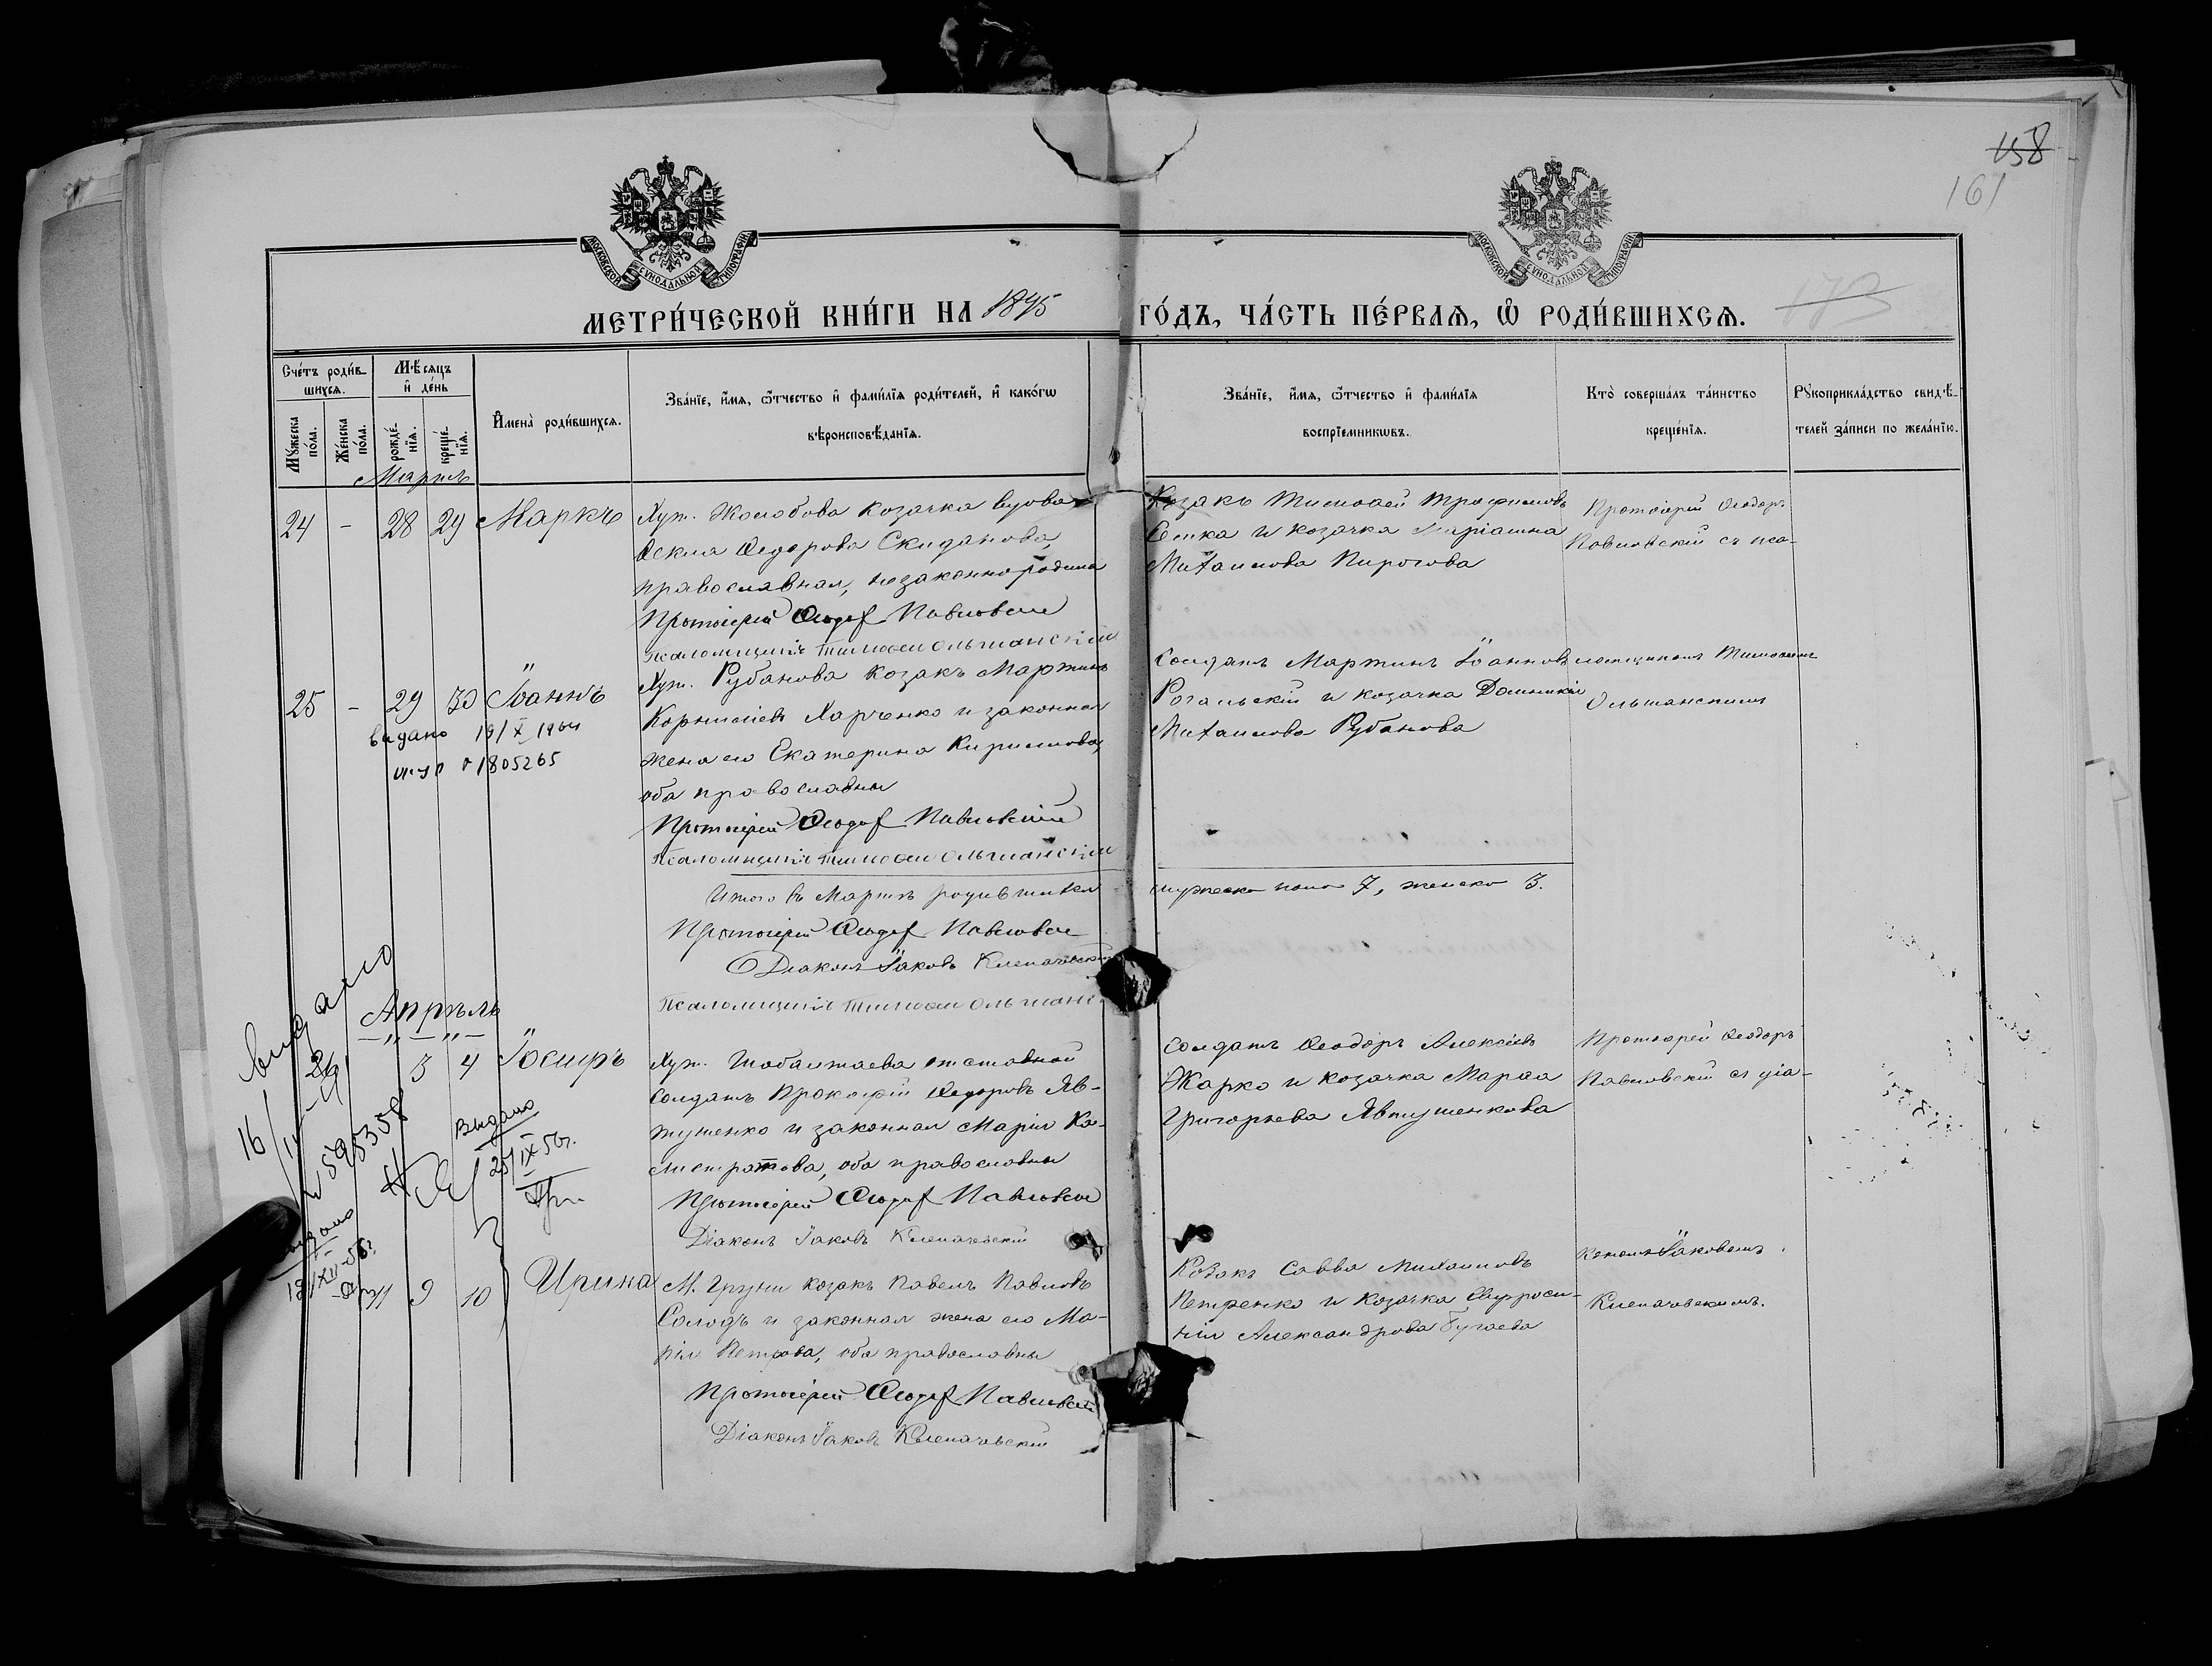 158
161
173
МОСКОВСКОЙ СУНОДАЛЬНОЙ ТИПОГРАФІИ
МОСКОВСКОЙ СУНОДАЛЬНОЙ ТИПОГРАФІИ
МЕТРИ́ЧЕСКОЙ КНИ́ГИ НА 1895 ГО́ДЪ, ЧА́СТЬ ПЕ́РВАѦ, Ѡ҆ РОДИ́ВШИХСѦ.
Сче́тъ роди́в-
шихсѧ.
Мѣ́сѧцъ
и҆ де́нь
Мꙋ́жеска
по́ла.
Же́нска
по́ла.
рожде́-
нїѧ.
креще́-
нїѧ.
И҆мена̀ роди́вшихсѧ.
Зва́нїе, и҆́мѧ, ѻ҆́тчество и҆ фами́лїѧ роди́телей, и҆ како́гѡ
вѣроисповѣ́данїѧ.
Зва́нїе, и҆́мѧ, ѻ҆́тчество и҆ фами́лїѧ
воспрїе́мникѡвъ.
Кто̀ соверша́лъ та́инство
креще́нїѧ.
Рꙋкоприкла́дство свидѣ́-
телей за́писи по жела́нїю.
Мартъ
24 - 28 29 Маркъ
Хут. Жолобова козачка вдова
Ѳекла Ѳедорова Скиданова,
православная, незаконнорожден
Протоіерей Ѳеодоръ Павловскій
Псаломщикъ Тимоѳей Ольшанскій
Козакъ Тимоѳей Трофимовъ
и козачка Маріанна
Михаилова Пирогова
Протоіерей Ѳеодоръ
Павловскій съ пса-
25 - 29 30 Іоаннъ
видано 19/X 1964
1805265
Хут. Рубанова козакъ Мартинъ
Корниліевъ Харченко и законная
жена его Екатерина Кириллова,
оба православны
Протоіерей Ѳеодоръ Павловскій
Псаломщикъ Тимоѳей Ольшанскій
Солдатъ Мартинъ Іоанновъ
Рогальскій и козачка Домникія
Михаилова Рубанова
ломщикомъ Тимоѳеемъ
Ольшанскимъ
Итого въ Мартѣ родившихся мужеска пола 7, женска 3.
Протоіерей Ѳеодоръ Павловскій
Діаконъ Іаковъ Клепачевскій
Псаломщикъ Тимоѳей Ольшанс
Апрѣль
видано
16/
595358
26 3 4 Іосифъ
Выдано
25/IX 56г.
Хут. Шабалтаева отставной
солдатъ Прокофій Ѳедоровъ Яв-
тушенко и законная Марія Ка-
листратова, оба православны
Протоіерей Ѳеодоръ Павловскій
Діаконъ Іаковъ Клепачевскій
Солдатъ Ѳеодоръ Алексіевъ
Жарко и козачка Марѳа
Григорьева Явтушенкова
Протоіерей Ѳеодоръ
Павловскій съ діа-
9 10 Ирина
М. Груни козакъ Павелъ Павловъ
Солодъ и законная жена его Ма-
рія Петрова, оба православны
Протоіерей Ѳеодоръ Павловскій
Діаконъ Іаковъ Клепачевскій
Козакъ Савва Михаиловъ
Петренко и козачка Евфроси-
нія Александрова Бугаева
кономъ Іаковомъ
Клепачевскимъ.